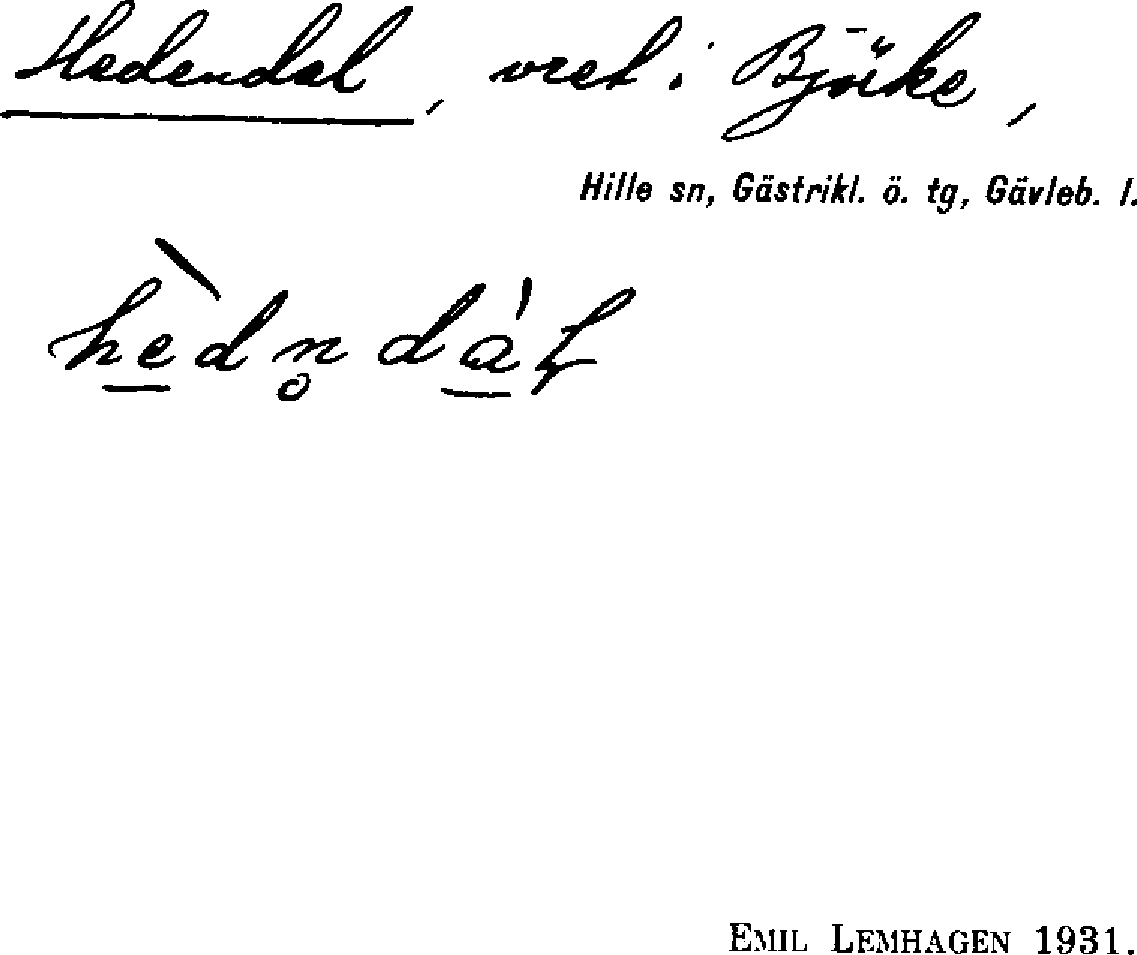 Hedendal, vret i Bjöke,
Hille sn, Gästrikl. ö. tg, Gävleb. l.
hèdn̥dàł
EMIL LEMHAGEN 1931.